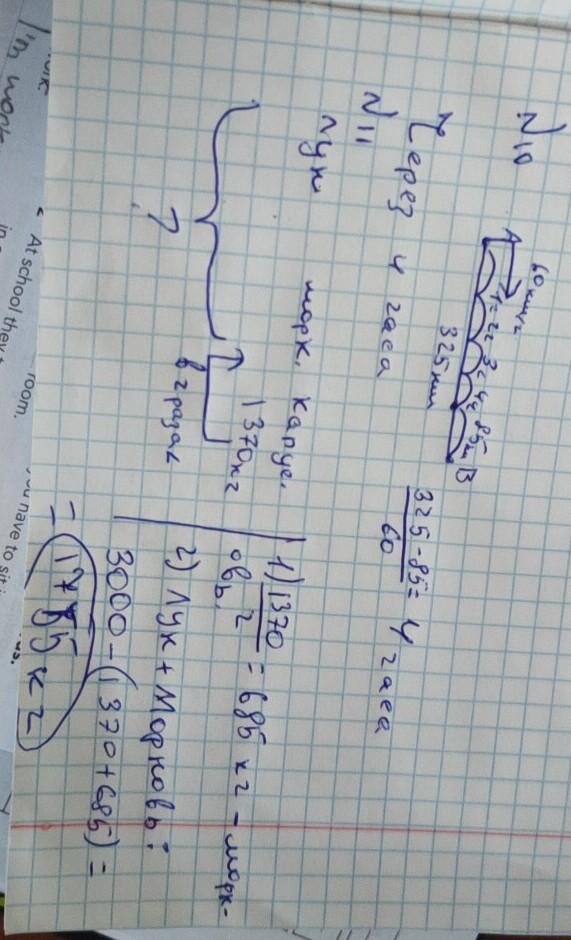 N10
60 км/ч
A 1ч 2ч 3ч 4ч 85км B
325 км
325-85 = 4 часа
60
Через 4 часа
N11
Лук морк. капус.
1370кг
в 2 раза <
?
1) 1370 = 685 кг - морк-
2
овь.
2) Лук + Морковь:
3000-(1370+685) =
= 1785 кг
At school they
room.
you have to sit i